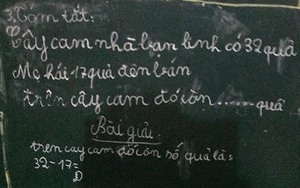 3. Tóm tắt:
Cây cam nhà bạn linh có 32 quả
Mẹ hái 17 quả đên bán
trên cây cam đó còn ....... quả
Bài giải:
trên cay cam đó còn số quả là:
32-17=
Đ